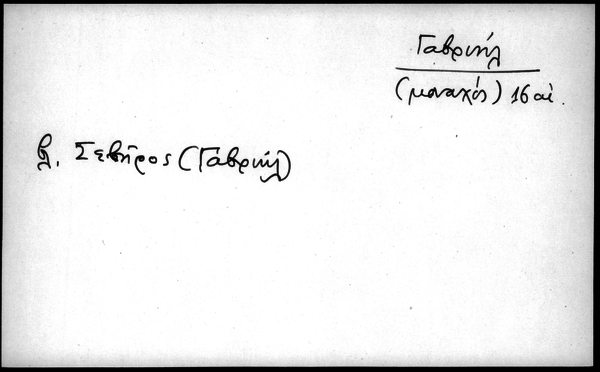 Γαβριήλ
(μοναχός) 16 αἰ.
βλ. Σεβῆρος (Γαβριήλ)